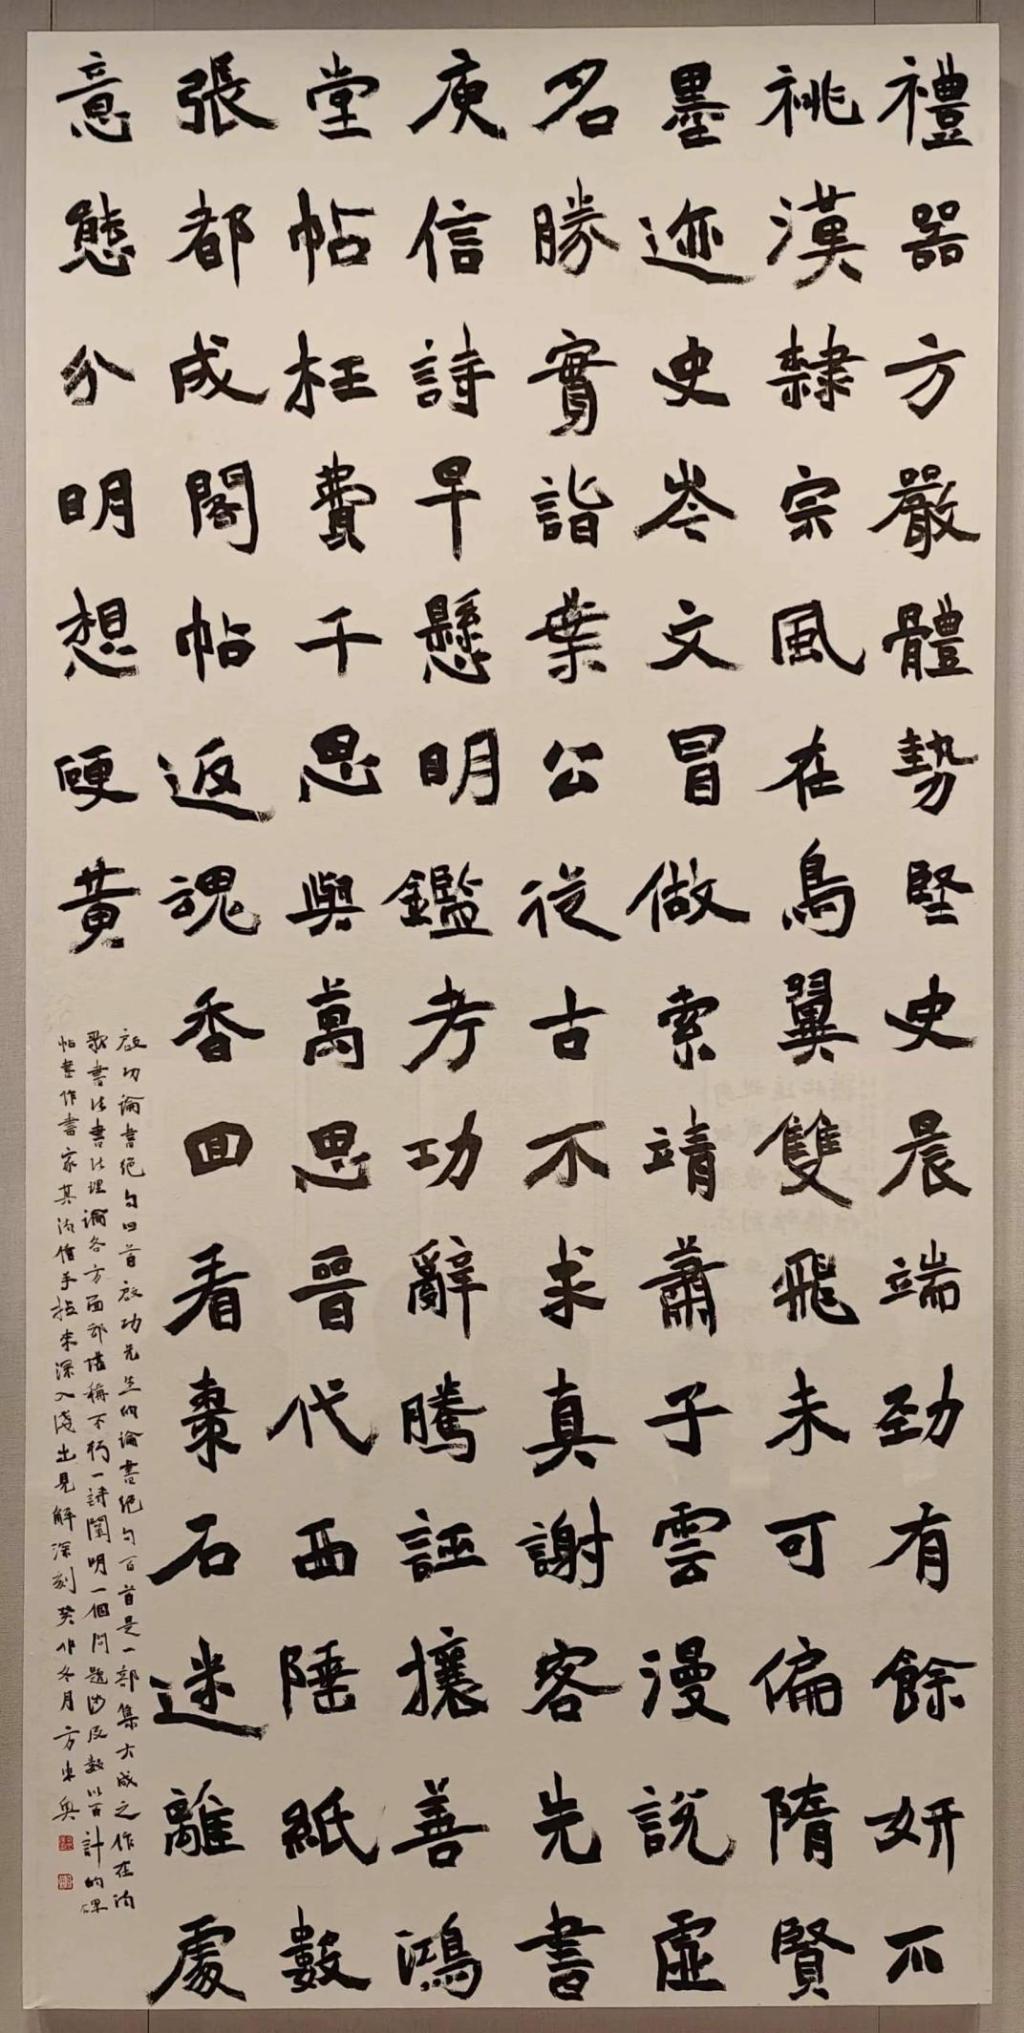 禮器方嚴體勢堅史晨端勁有餘妍不
祧漢隸宗風在鳥翼雙飛未可偏隋賢
墨迹史岑文冒做索靖蕭子雲漫說虛
名勝實詣葉公從古不求真謝客先書
庾信詩早懸明鑑考功辭騰誣攘善鴻
堂帖枉費千思與萬思晉代西陲紙數
張都成閣帖返魂香回看棗石迷離處
意態分明想硬黃
啟功論書絕句四首啟功先生的論書絕句百首是一部集大成之作在詩
歌書法書法理論各方面都堪稱不朽一詩闡明一個問題涉及數以百計的碑
帖書作書家其論信手拈來深入淺出見解深刻癸卯冬月方東奧